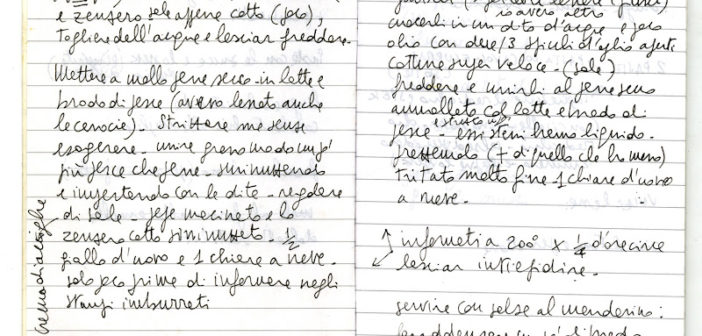 e zenzero sale appena cotto (poco),
togliere dell'acqua e lasciar freddare.
Mettere a mollo pane secco in latte e
brodo di pesce (avevo lessato anche
le canocie). Strizzare ma senza
esagerare. unire grano modo un po'
più pesce che pane. sminuzzando
e impastando con le dita. regolare
di sale. pepe macinato e lo
zenzero cotto sminuzzato. 1/2
giallo d'uovo e 1 chiara a neve.
solo poco prima di infornare negli
stampi imburrati
Crema di acciughe
cuocerli in un dito d'acqua e poco
olio con due/3 spicchi d'aglio a
cottura super veloce. (sale)
freddare e unirli al pane secco
ammollato col latte e brodo di
pesce. essi tenermo liquido.
prezzemolo (+ di quello che ho messo)
tritato molto fine. 1 chiara d'uovo
a neve.
infornati a 200° x 1/4 d'ora circa
lasciar intiepidire.
servire con salsa al mandarino: